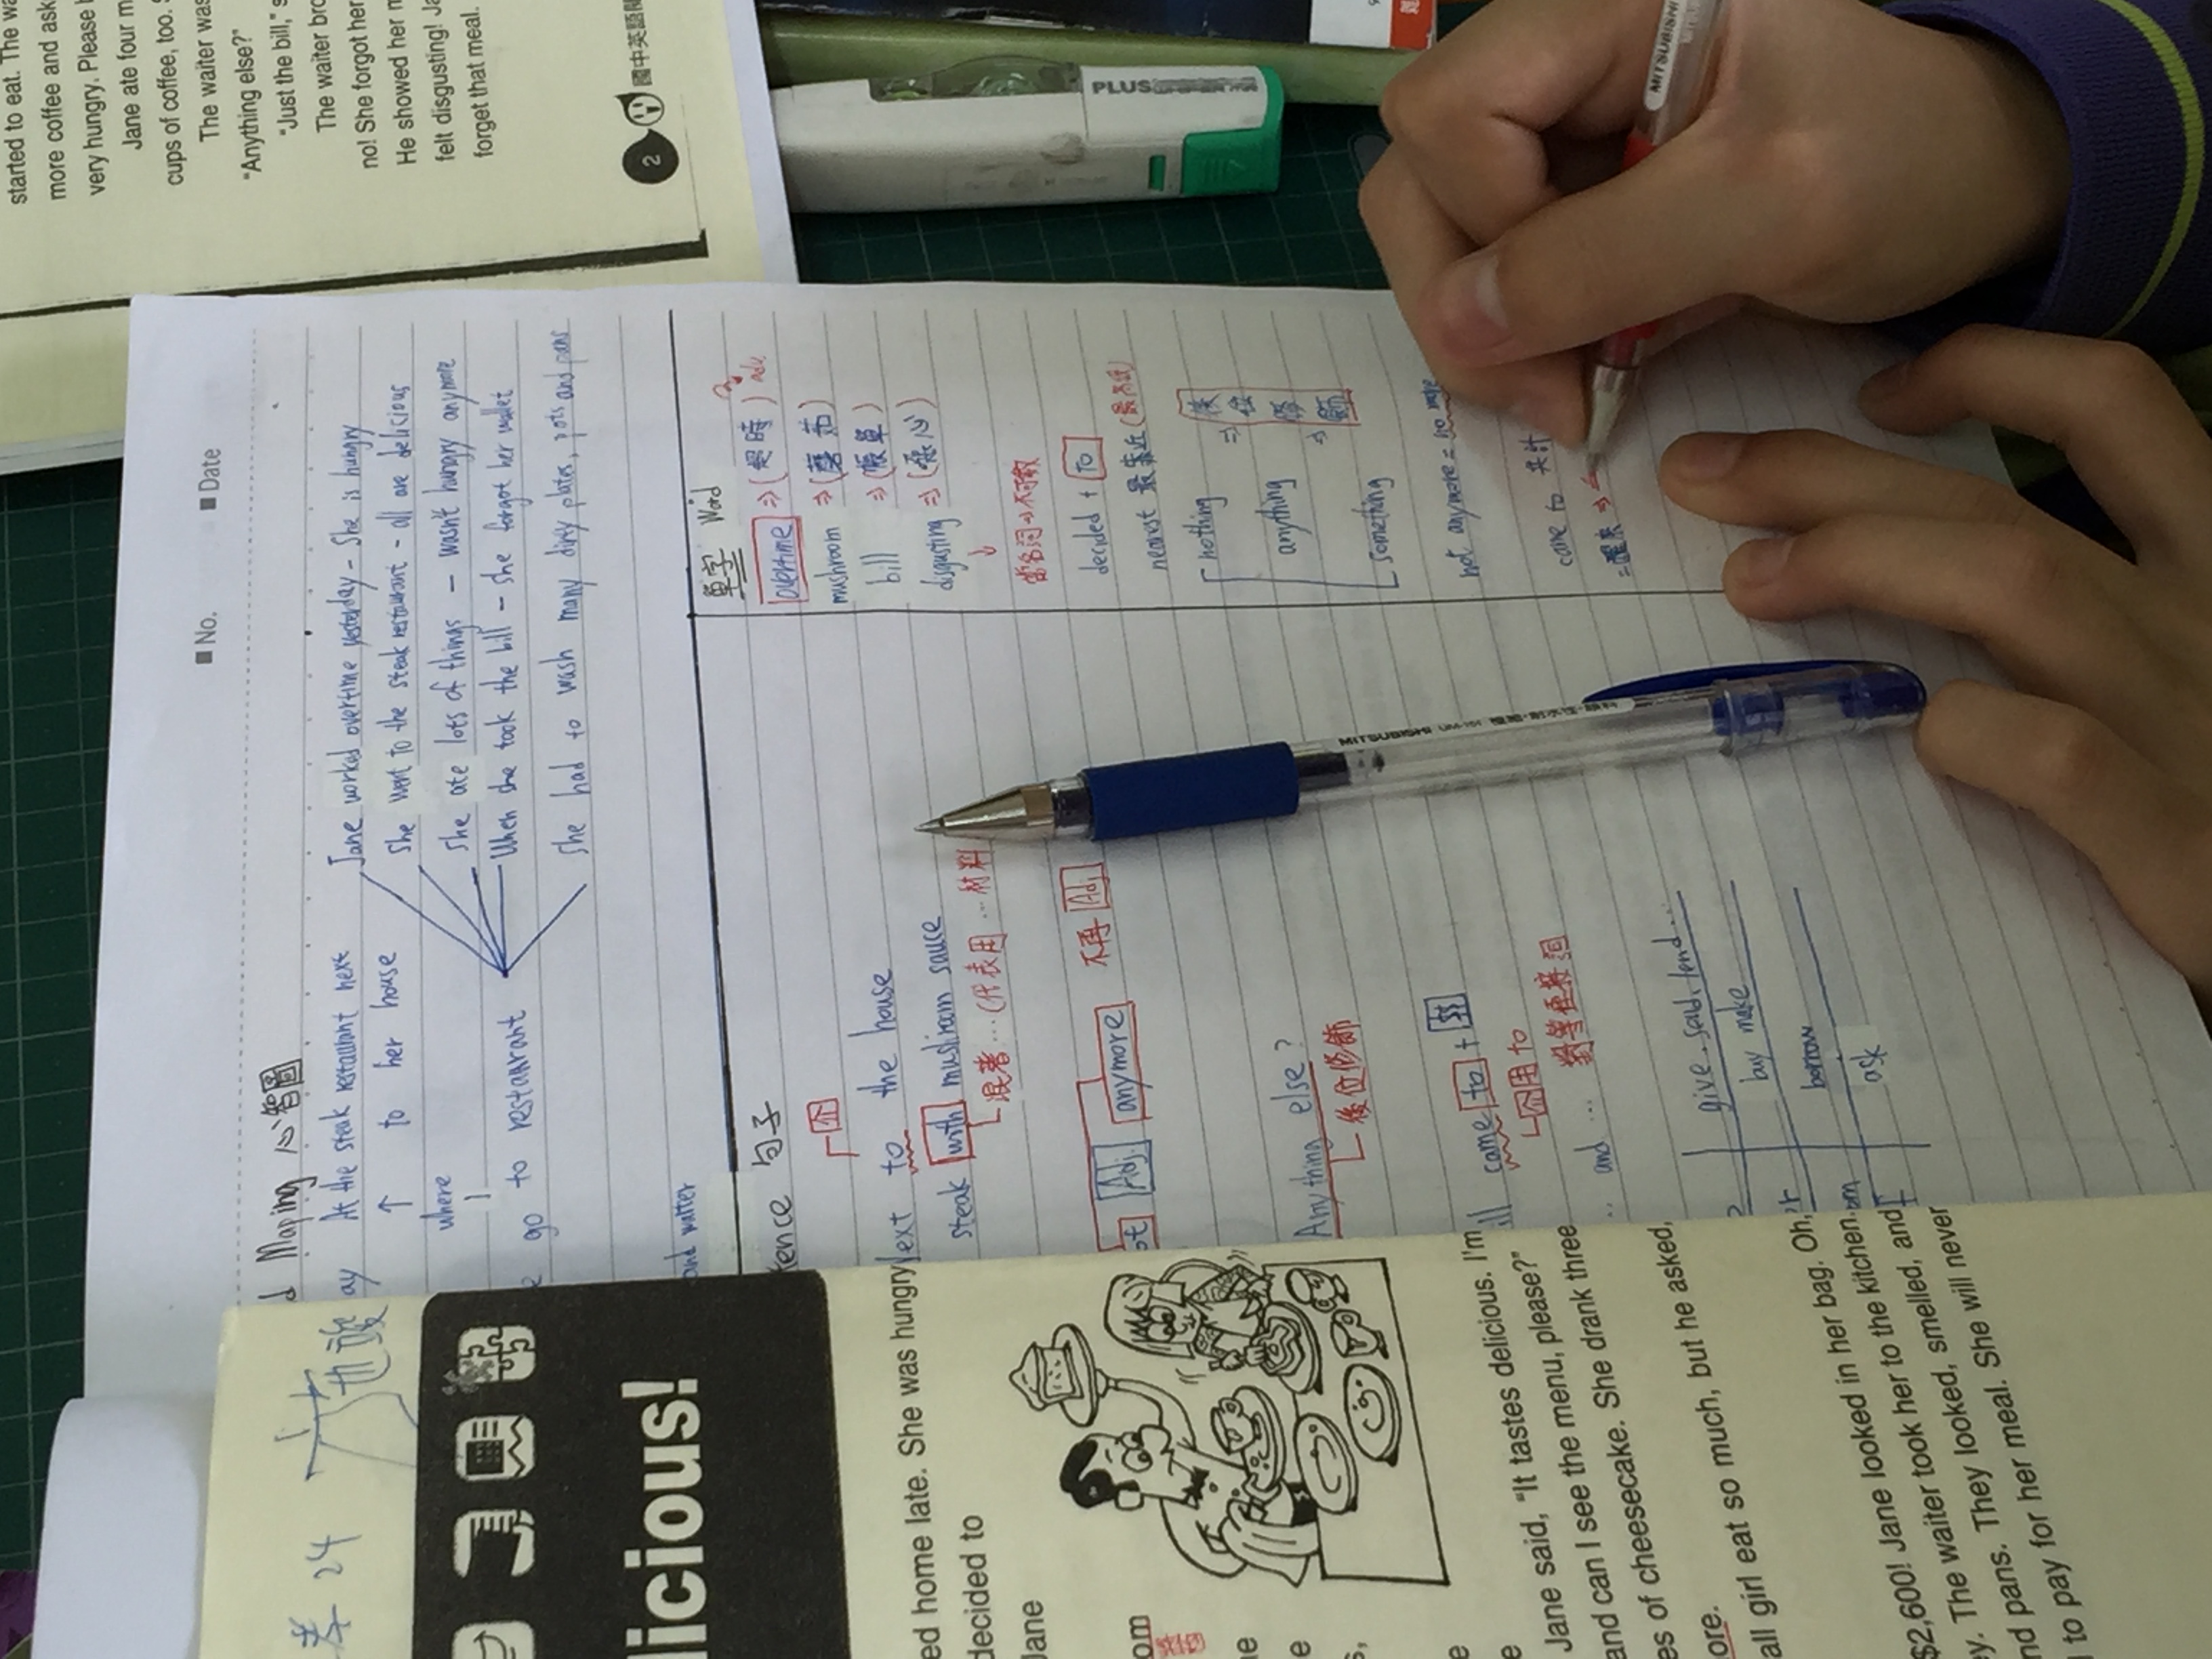 started to eat. The wa
more coffee and ask
very hungry. Please
Jane ate four m
cups of coffee, too.
The waiter was
"Anything else?"
"Just the bill," s
The waiter bro
no! She forgot her
He showed her m
felt disgusting! Ja
forget that meal.
2
國中英語閱
PLUS
MITSUBISHI
■ No. ■ Date
d Maping 心智圖
ay At the steak restaurant next
↑ to her house
where
go to restarant
Jane worked overtime yesterday - She is hungry
She went to the steak restaurant - all are delicious
She ate lots of things - wasn't hungry anymore
When she took the bill - she forgot her wallet
She had to wash many dirty plates, pots and pans
and watter
tence 句子
ext to the house
steak with mushroom sauce
混著...(代表用...材料
ot Adj. anymore 不再 Adj
Anything else?
後位修飾
ill came to + $$
介用 to
.. and ... 對等連接詞
give. send. lend...
buy make
borrow
ask
單字 Word
overtime ⇒(超時) adv.
mushroom ⇒(蘑菇)
bill ⇒(帳單)
disgusting ⇒(噁心)
當名詞⇒不可數
decided + to
nearest 最靠近
nothing
anything
something
⇒ 後位修飾
not anymore = no more
came to 共計
=醒來 ⇒
MITSUBISHI
24
licious!
ed home late. She was hungry
decided to
Jane
om
Jane said, "It tastes delicious. I'm
and can I see the menu, please?"
es of cheesecake. She drank three
ore.
all girl eat so much, but he asked,
$2,600! Jane looked in her bag. Oh,
y. The waiter took her to the kitchen.
nd pans. They looked, smelled, and
l to pay for her meal. She will never